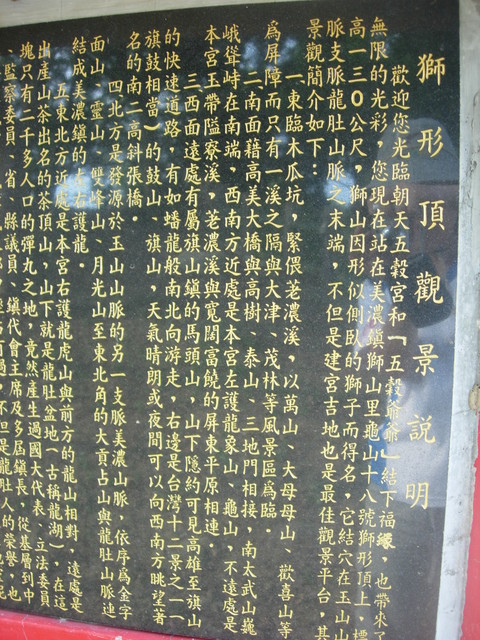 獅形頂觀景説明
歡迎您光臨朝天五穀宮和「五穀爺爺」結下福緣，也帶來了
無限的光彩，您現在站在美濃鎮獅山里龜山十八號獅形頂上，標
高一三０公尺，獅山因形似側臥的獅子而得名，它結穴在玉山山
脈支脈龍肚山脈之末端，不但是建宮吉地也是最佳觀景平台，其
景觀簡介如下：
一、東臨木瓜坑，緊偎荖濃溪，以萬山、大母母山、歡喜山等
為屏障而只有一溪之隔與大津、茂林等風景區為臨。
二、南面藉高美大橋與高樹、泰山、三地門相接，南太武山巍
峨聳峙在南端，西南方近處是本宮左護龍象山、龜山，不遠處是
本宮玉帶隘寮溪，荖濃溪與寬闊富饒的屏東平原相連。
三、西面遠處有屬旗山鎮的馬頭山，山下隱約可見高雄至旗山
的快速道路，有如蟠龍般南北向游走，右邊是台灣十二景之一（
旗鼓相當）的鼓山、旗山，天氣晴朗或夜間可以向西南方眺望著
名的南二高斜張橋。
四、北方是發源於玉山山脈的另一支脈美濃山脈，依序為金字
面山、靈山、雙峰山、月光山至東北角的大貢占山與龍肚山脈連
結成美濃鎮的左右護龍。
五、東北方近處是本宮右護龍虎山與前方的龍山相對，遠處是
出產山茶出名的茶頂山，山下就是龍肚盆地（古稱龍湖），在這
塊只有二千多人口的彈丸之地，竟然產生過國大代表、立法委員
、監察委員、省、縣議員、鎮代會主席及多屆鎮長，從基層到中
不但是龍肚人的榮譽，也